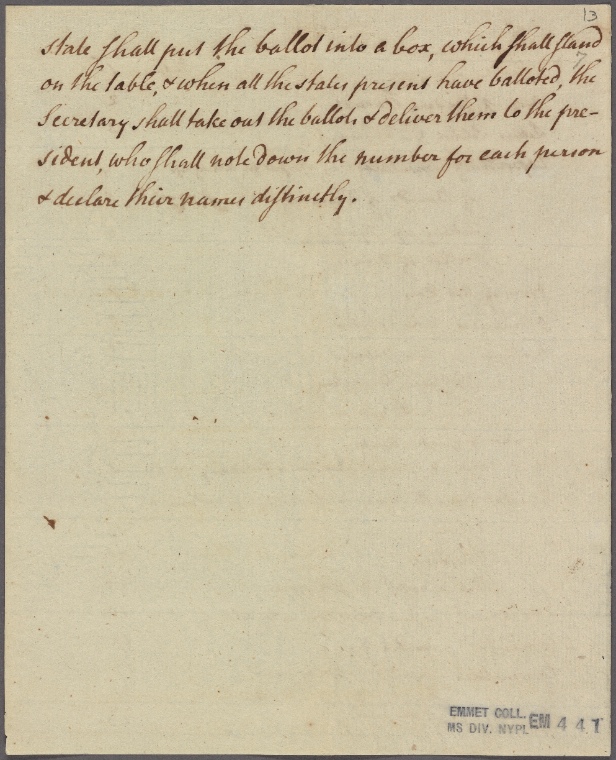 13
state shall put the ballot into a box, which shall stand
on the table, & when all the states present have balloted, the
Secretary shall take out the ballots & deliver them to the pre-
sident, who shall note down the number for each person
& declare their names distinctly.
EMMET COLL.
MS DIV. NYPL
EM 441